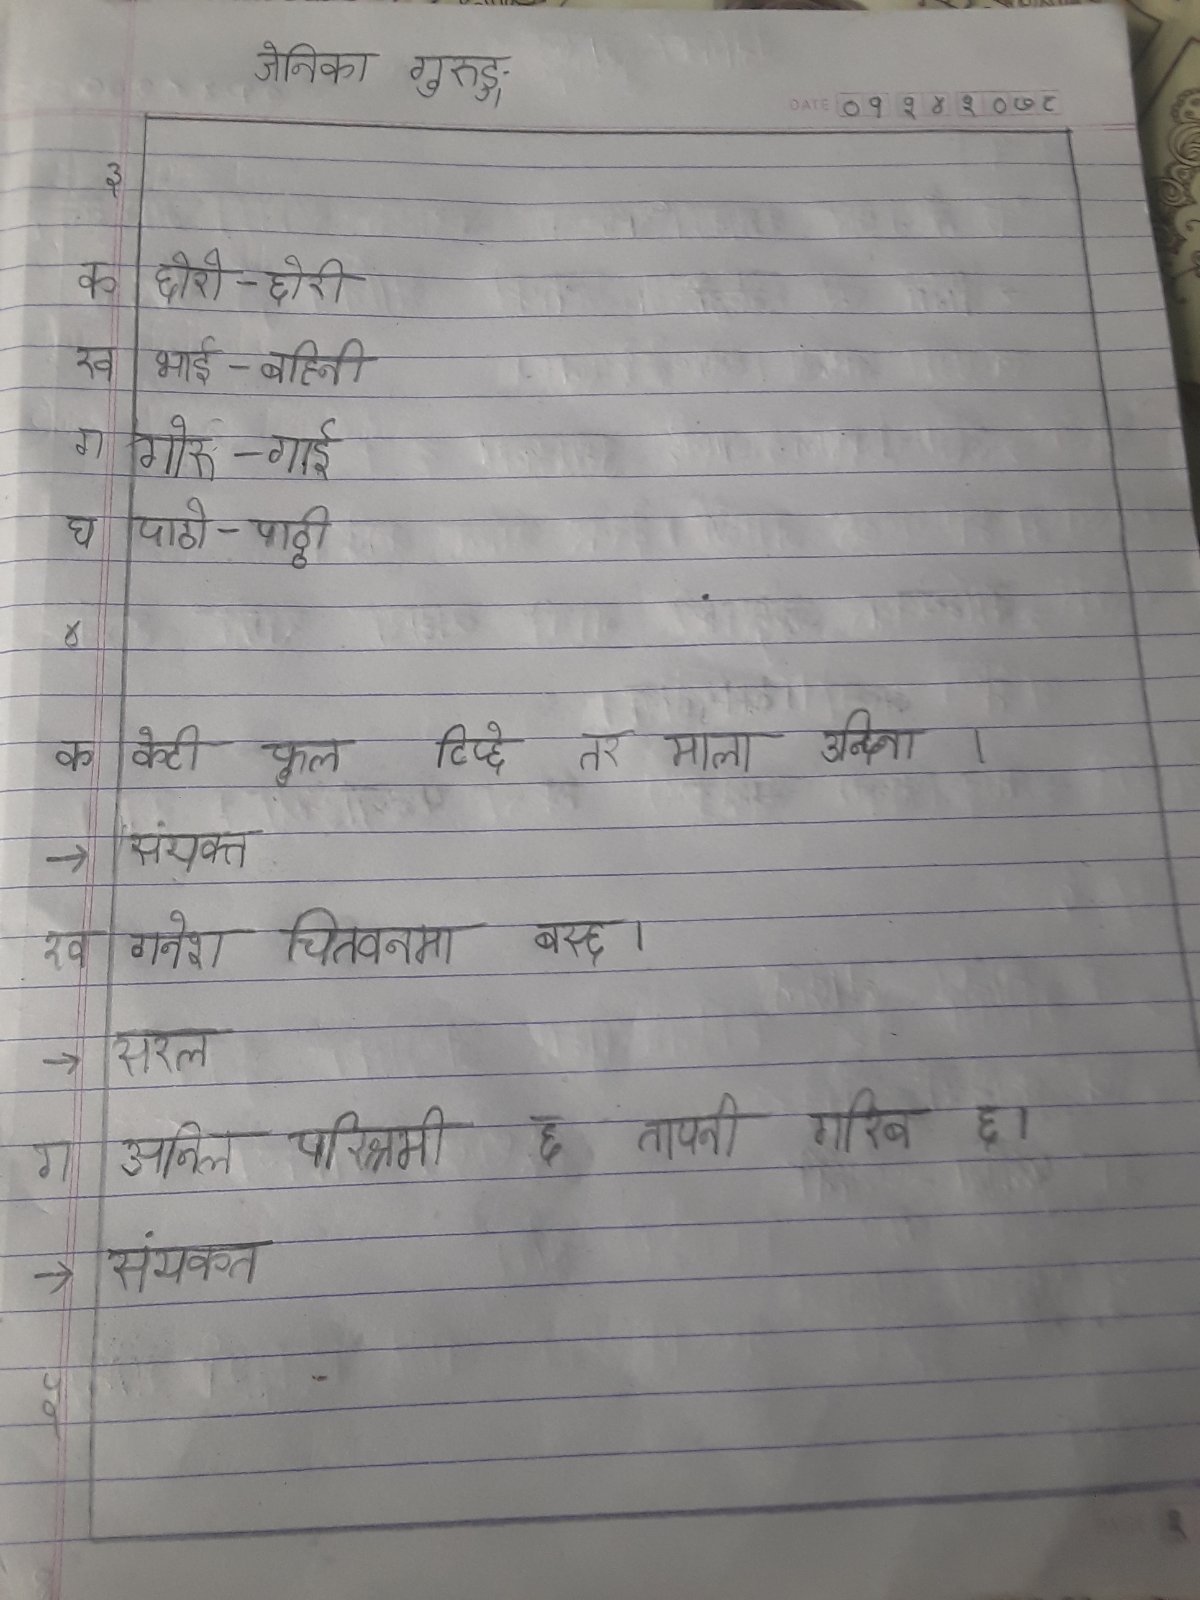 जेनिका गुरुङ्ग
DATE ०१ १ ४ २ ० ७८
३
क छोरो - छोरी
ख भाई - बहिनी
ग गोरु - गाई
घ पाठो - पाठ्ठी
४
क केटी फूल टिप्छे तर माला उन्दिना ।
→ संयक्त
ख गनेश चितवनमा बस्छ ।
→ सरल
ग अनिल परिश्रमी छ तापनी गरिब छ ।
→ संयकत
५